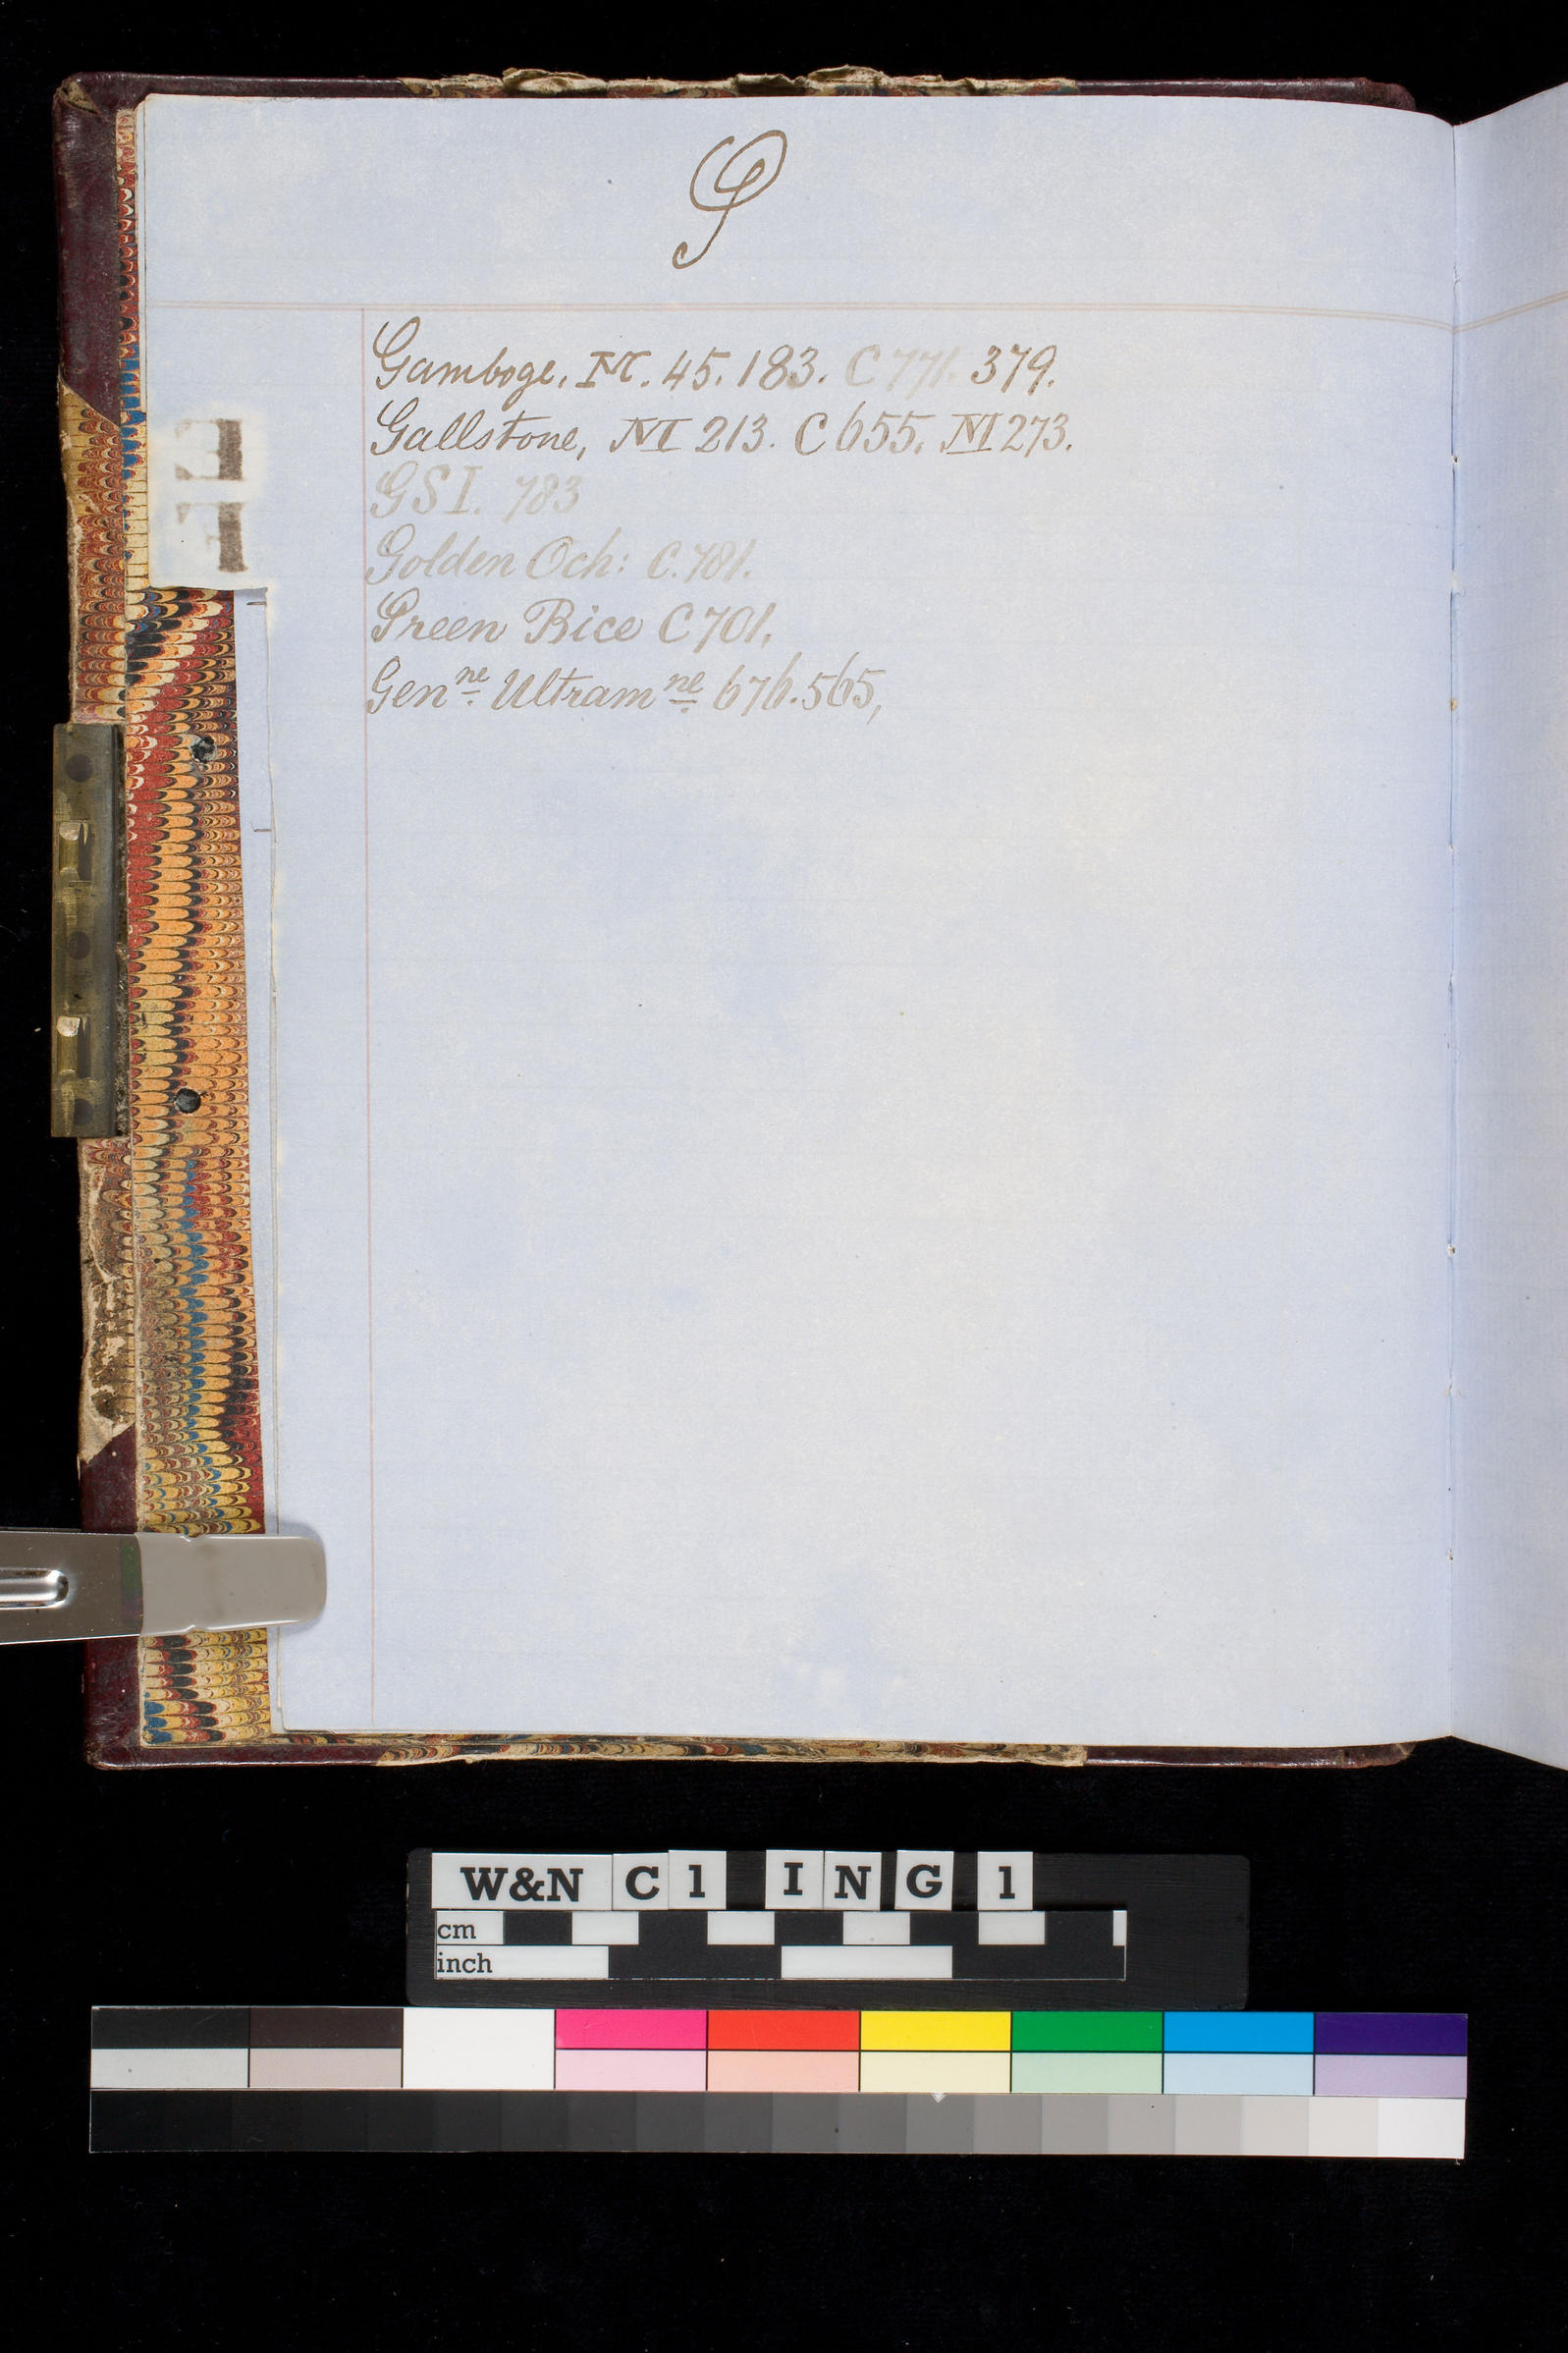 G
Gamboge, M. 45. 183. C 771. 379.
Gallstone, M 213. C 655. M 273.
GSI. 783
Golden Och: C. 781.
Green Bice C 701,
Genne Ultramne 676. 565,
W&N C1 ING 1
cm
inch